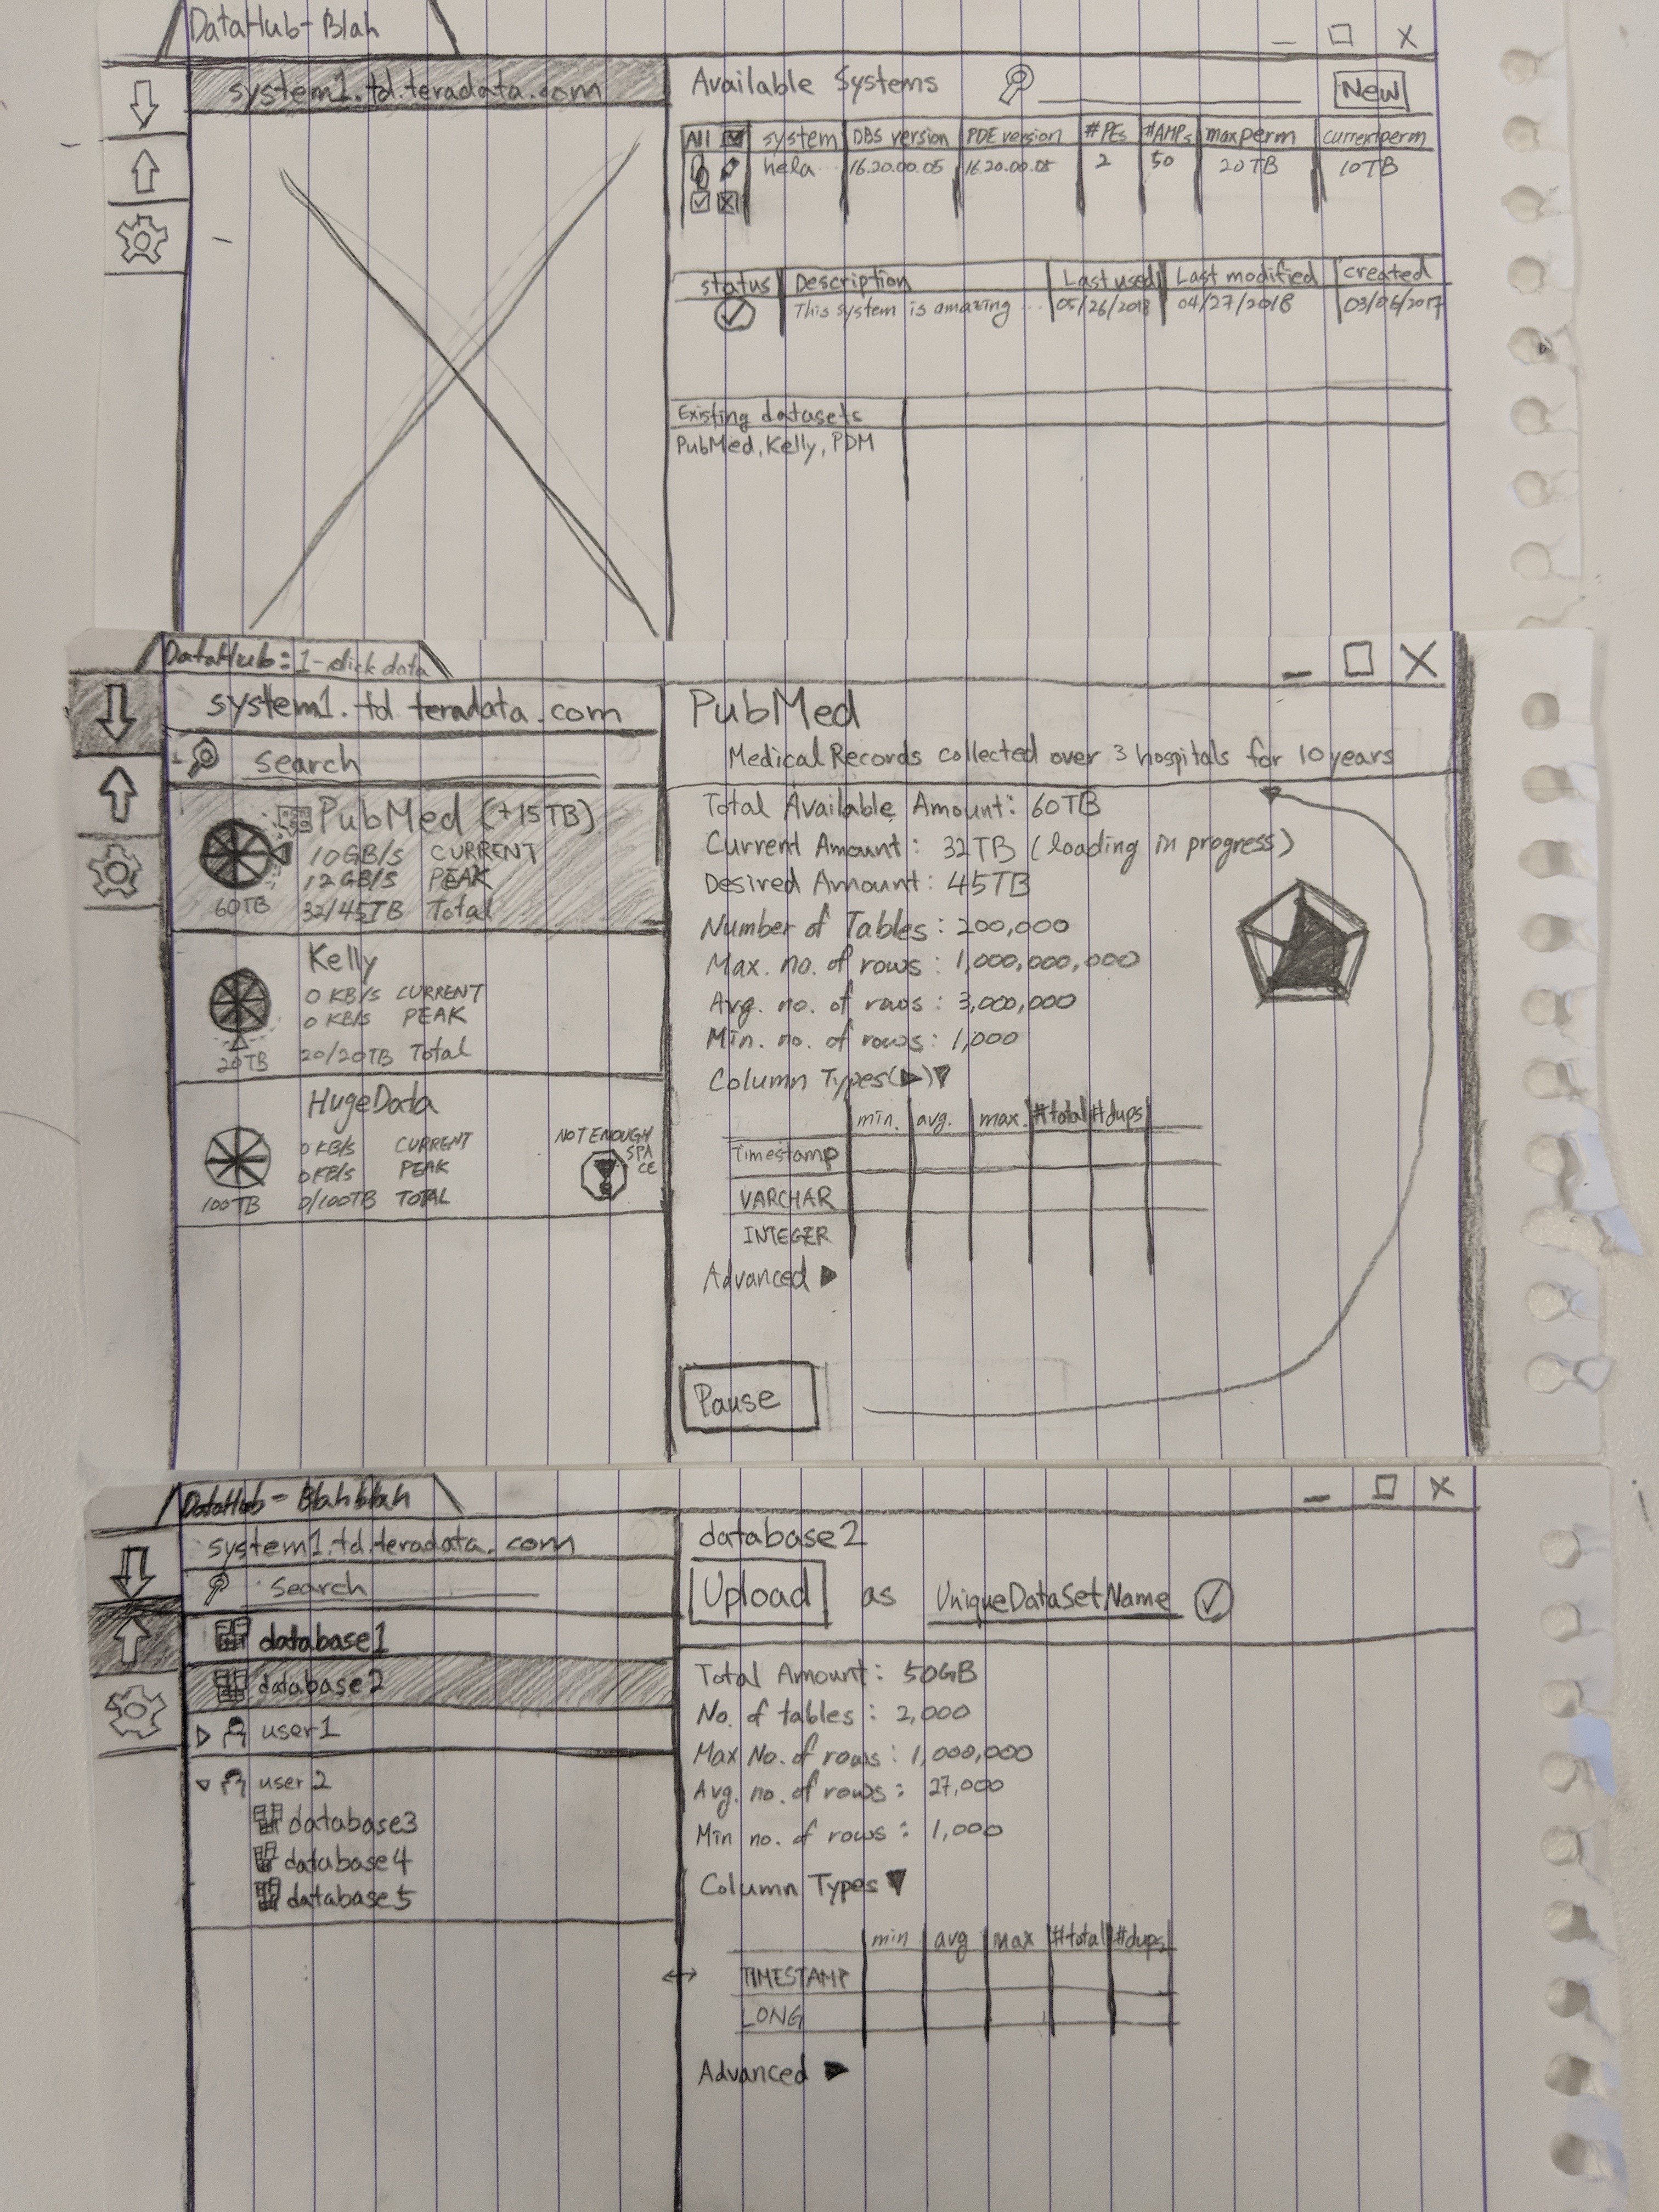 DataHub- Blah
system1.td.teradata.com
Available Systems
New
All system DBS version PDE version #PEs #AMPs maxperm currentperm
hela... 16.20.00.05 16.20.00.05 2 50 20TB 10TB
status Description Last used Last modified created
This system is amazing ... 05/26/2018 04/27/2018 03/06/2017
Existing datasets
PubMed, Kelly, PDM
DataHub: 1-click data
system1.td.teradata.com
search
PubMed (+15TB)
10GB/S CURRENT
12GB/S PEAK
60TB 32/45TB Total
Kelly
0 KB/S CURRENT
0 KB/S PEAK
20TB 20/20TB Total
HugeData
0 KB/S CURRENT
0KB/S PEAK
100TB 0/100TB TOTAL
NOT ENOUGH
SPA
CE
PubMed
Medical Records collected over 3 hospitals for 10 years
Total Available Amount: 60TB
Current Amount: 32TB (loading in progress)
Desired Amount: 45TB
Number of Tables: 200,000
Max. no. of rows: 1,000,000,000
Avg. no. of rows: 3,000,000
Min. no. of rows: 1,000
Column Types(▶)▼
min. avg. max. #total #dups
Timestamp
VARCHAR
INTEGER
Advanced ▶
Pause
DataHub- Blahblah
system1.td.teradata.com
search
database1
database2
user1
user2
database3
database4
database5
database2
Upload as UniqueDataSetName
Total Amount: 50GB
No. of tables: 2,000
Max No. of rows: 1,000,000
Avg. no. of rows: 27,000
Min no. of rows: 1,000
Column Types ▼
min avg max #total #dups
TIMESTAMP
LONG
Advanced ▶